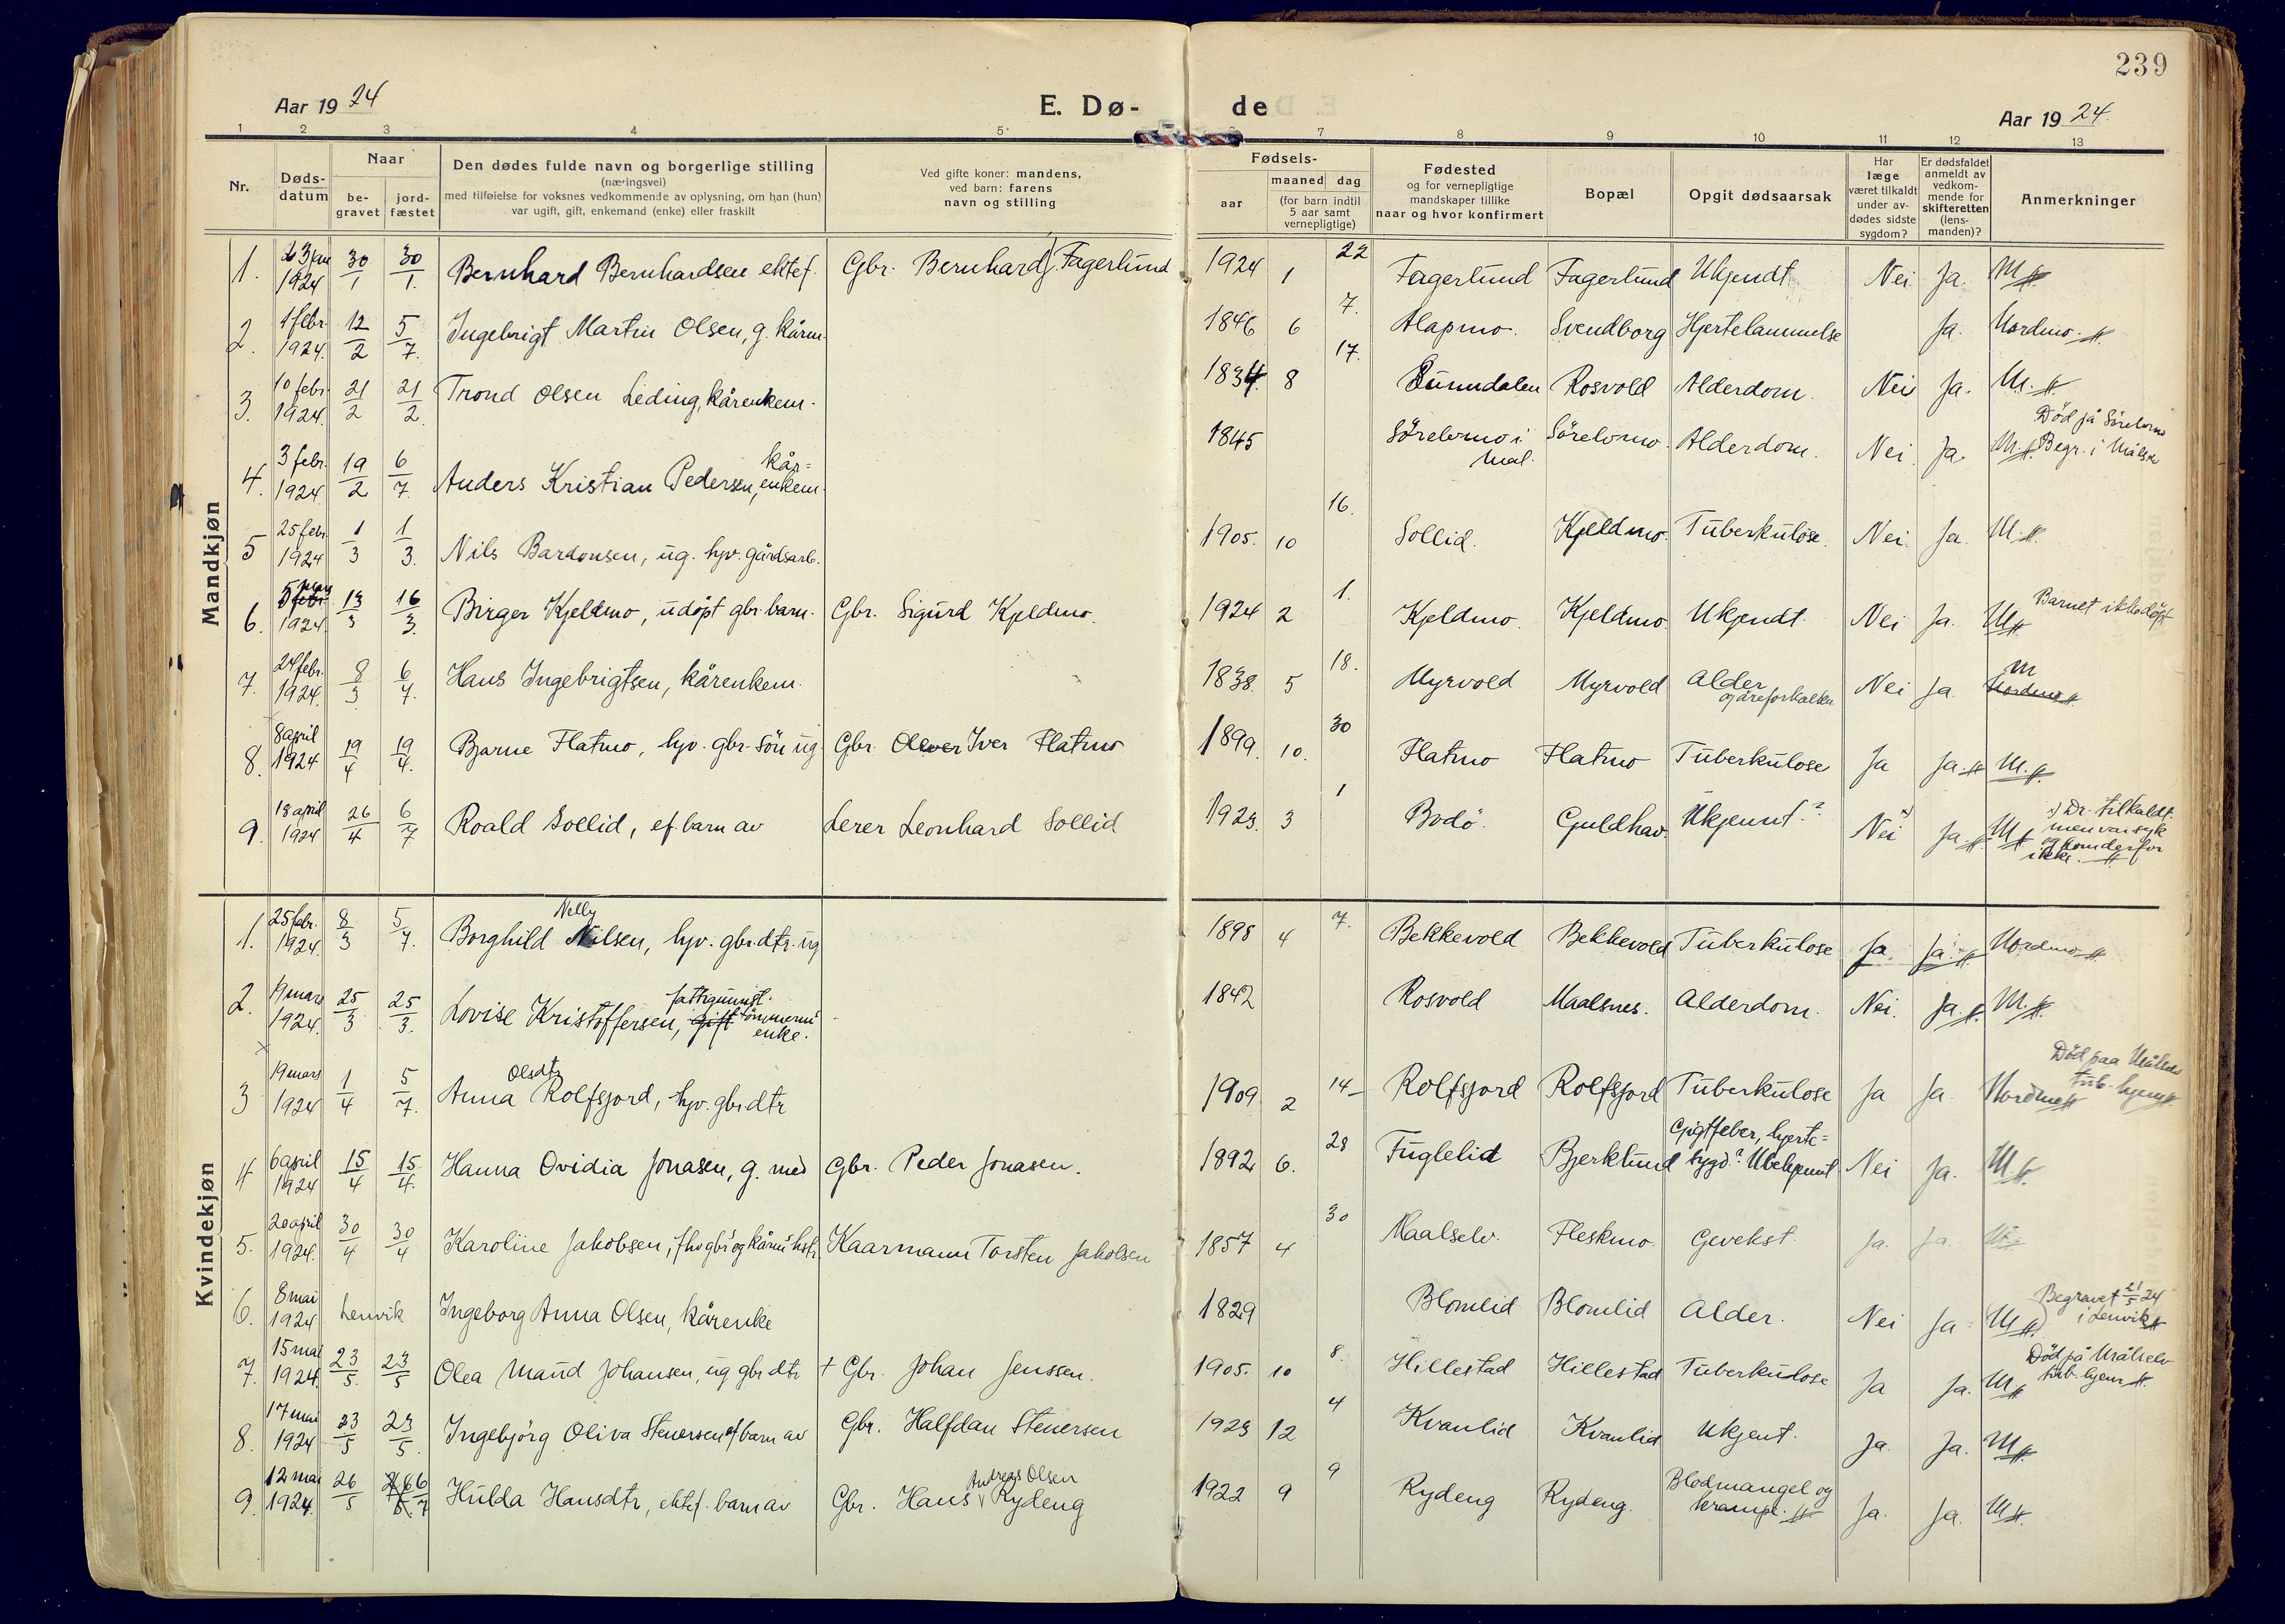 239
Aar 1924 E. Dø- de Aar 1924.
1 2 3 4 5 7 8 9 10 11 12 13
Nr. Døds-datum Naar begravet jordfæstet Den dødes fulde navn og borgerlige stilling (næringsvei) med tilføielse for voksnes vedkommende av oplysning, om han (hun) var ugift, gift, enkemand (enke) eller fraskilt Ved gifte koner: mandens, ved barn: farens navn og stilling Fødsels- aar maaned dag (for barn indtil 5 aar samt vernepligtige) Fødested og for vernepligtige mandskaper tillike naar og hvor konfirmert Bopæl Opgit dødsaarsak Har læge været tilkaldt under avdødes sidste sygdom? Er dødsfaldet anmeldt av vedkommende for skifteretten (lensmanden)? Anmerkninger
Mandkjøn
1. 23 jan 1924 30/1 30/1. Bernhard Bernhardsen ektef. Gbr. Bernhard J. Fagerlund 1924 1 22 Fagerlund Fagerlund Ukjendt Nei Ja. M
2. 1 febr. 1924. 12/2 5/7. Ingebrigt Martin Olsen, g. kårm. 1846 6 7. Alapmo. Svendborg Hjertelammelse Ja. Nordmo.
3. 10 febr. 1924. 21/2 21/2. Trond Olsen Leding, kårenkem. 1834. 8 17. Brunndalen Rosvold Alderdom. Nei Ja. M.
4. 3 febr. 1924 19/2 6/7. Anders Kristian Pedersen, kår=enkem. 1845 Sörelvmo i Mål. Sörelvmo. Alderdom. Nei. Ja. M. Död på Sörelvmo Begr. i Målselv
5 25 febr 1924 1/3 1/3. Nils Bardonsen, ug. hjv. gårdsarb. 1905. 10 16. Sollid. Kjeldmo. Tuberkulose. Nei. Ja. M.
6. 5 mars 1924. 13/3 16/3. Birger Kjeldmo, udöpt gbr. barn. Gbr. Sigurd Kjeldmo. 1924 2 1. Kjeldmo. Kjeldmo. Ukjendt. Nei Ja. M Barnet ikke döpt
7. 24 febr. 1924. 8/3 6/7. Hans Ingebrigtsen, kårenkem. 1838. 5 18. Myrvold Myrvold Alder og åreforkalkn Nei Ja. M Nordmo
8. 8 april 1924 19/4 19/4. Bjarne Flatmo, hjv. gbr. sön ug. Gbr. Oliver Iver Flatmo 1899. 10. 30 Flatmo Flatmo Tuberkulose Ja Ja. M.
9. 18 april 1924 26/4 6/7 Roald Sollid, ef. barn av Lerer Leonhard Sollid 1923. 3 1 Bodö. Guldhav. Ukjennt.? Nei x) Ja. M x) Dr. tilkaldt men var syk og kom derfor ikke.
Kvindekjøn
1. 25 febr. 1924. 8/3 5/7. Borghild Nelly Nilsen, hjv. gbr. dtr. ug 1898 4 7. Bekkevold Bekkevold Tuberkulose Ja. Ja. Nordmo
2. 19 mars 1924. 25/3 25/3. Lovise Kristoffersen, gift fattigunnst. tömmerm enke. 1842 Rosvold Maalsnes. Alderdom. Nei. Ja. M.
3 19 mars 1924 1/4 5/7. Anna Olsdtr Rolfsjord, hjv. gbr dtr 1909. 2 14 Rolfsjord Rolfsjord Tuberkulose Ja Ja. Nordmo Död paa Målselv tub. hjem
4 6 april 1924 15/4 15/4. Hanna Ovidia Jonasen, g. med Gbr. Peder Jonasen. 1892 6. 28 Fuglelid Bjerklund Gigtfeber, hjerte=sygd? Ubekjennt Nei Ja. M
5. 20 april 1924. 30/4 30/4 Karoline Jakobsen, fhv gbr og kårm hstr. Kaarmann Torsten Jakobsen 1857 4 30 Maalselv. Fleskmo. Gevekst. Ja. Ja. M
6. 8 mai 1924 Lenvik Ingeborg Anna Olsen, kårenke 1829 Blomlid Blomlid Alder. Nei Ja M Begravet 21/5 24 i Lenvik
7. 15 mai 1924. 23/5. 23/5 Olea Maud Johansen, ug gbr dtr + Gbr. Johan Jenssen. 1905. 10 8. Hillestad Hillestad Tuberkulose Ja Ja. M Död på Målselv tub. hjem
8. 17 mai 1924 23/5 23/5. Ingebjörg Oliva Stenersen ef barn av Gbr. Halfdan Stenersen 1923 12 4 Kvanlid Kvanlid Ukjent. Ja. Ja. M
9. 12 mai 1924. 26/5 6/7 Hulda Hansdtr, ektef. barn av Gbr. Hans Andreas Olsen Rydeng 1922 9 9 Rydeng Rydeng. Blodmangel og krampe. Ja. Ja. M